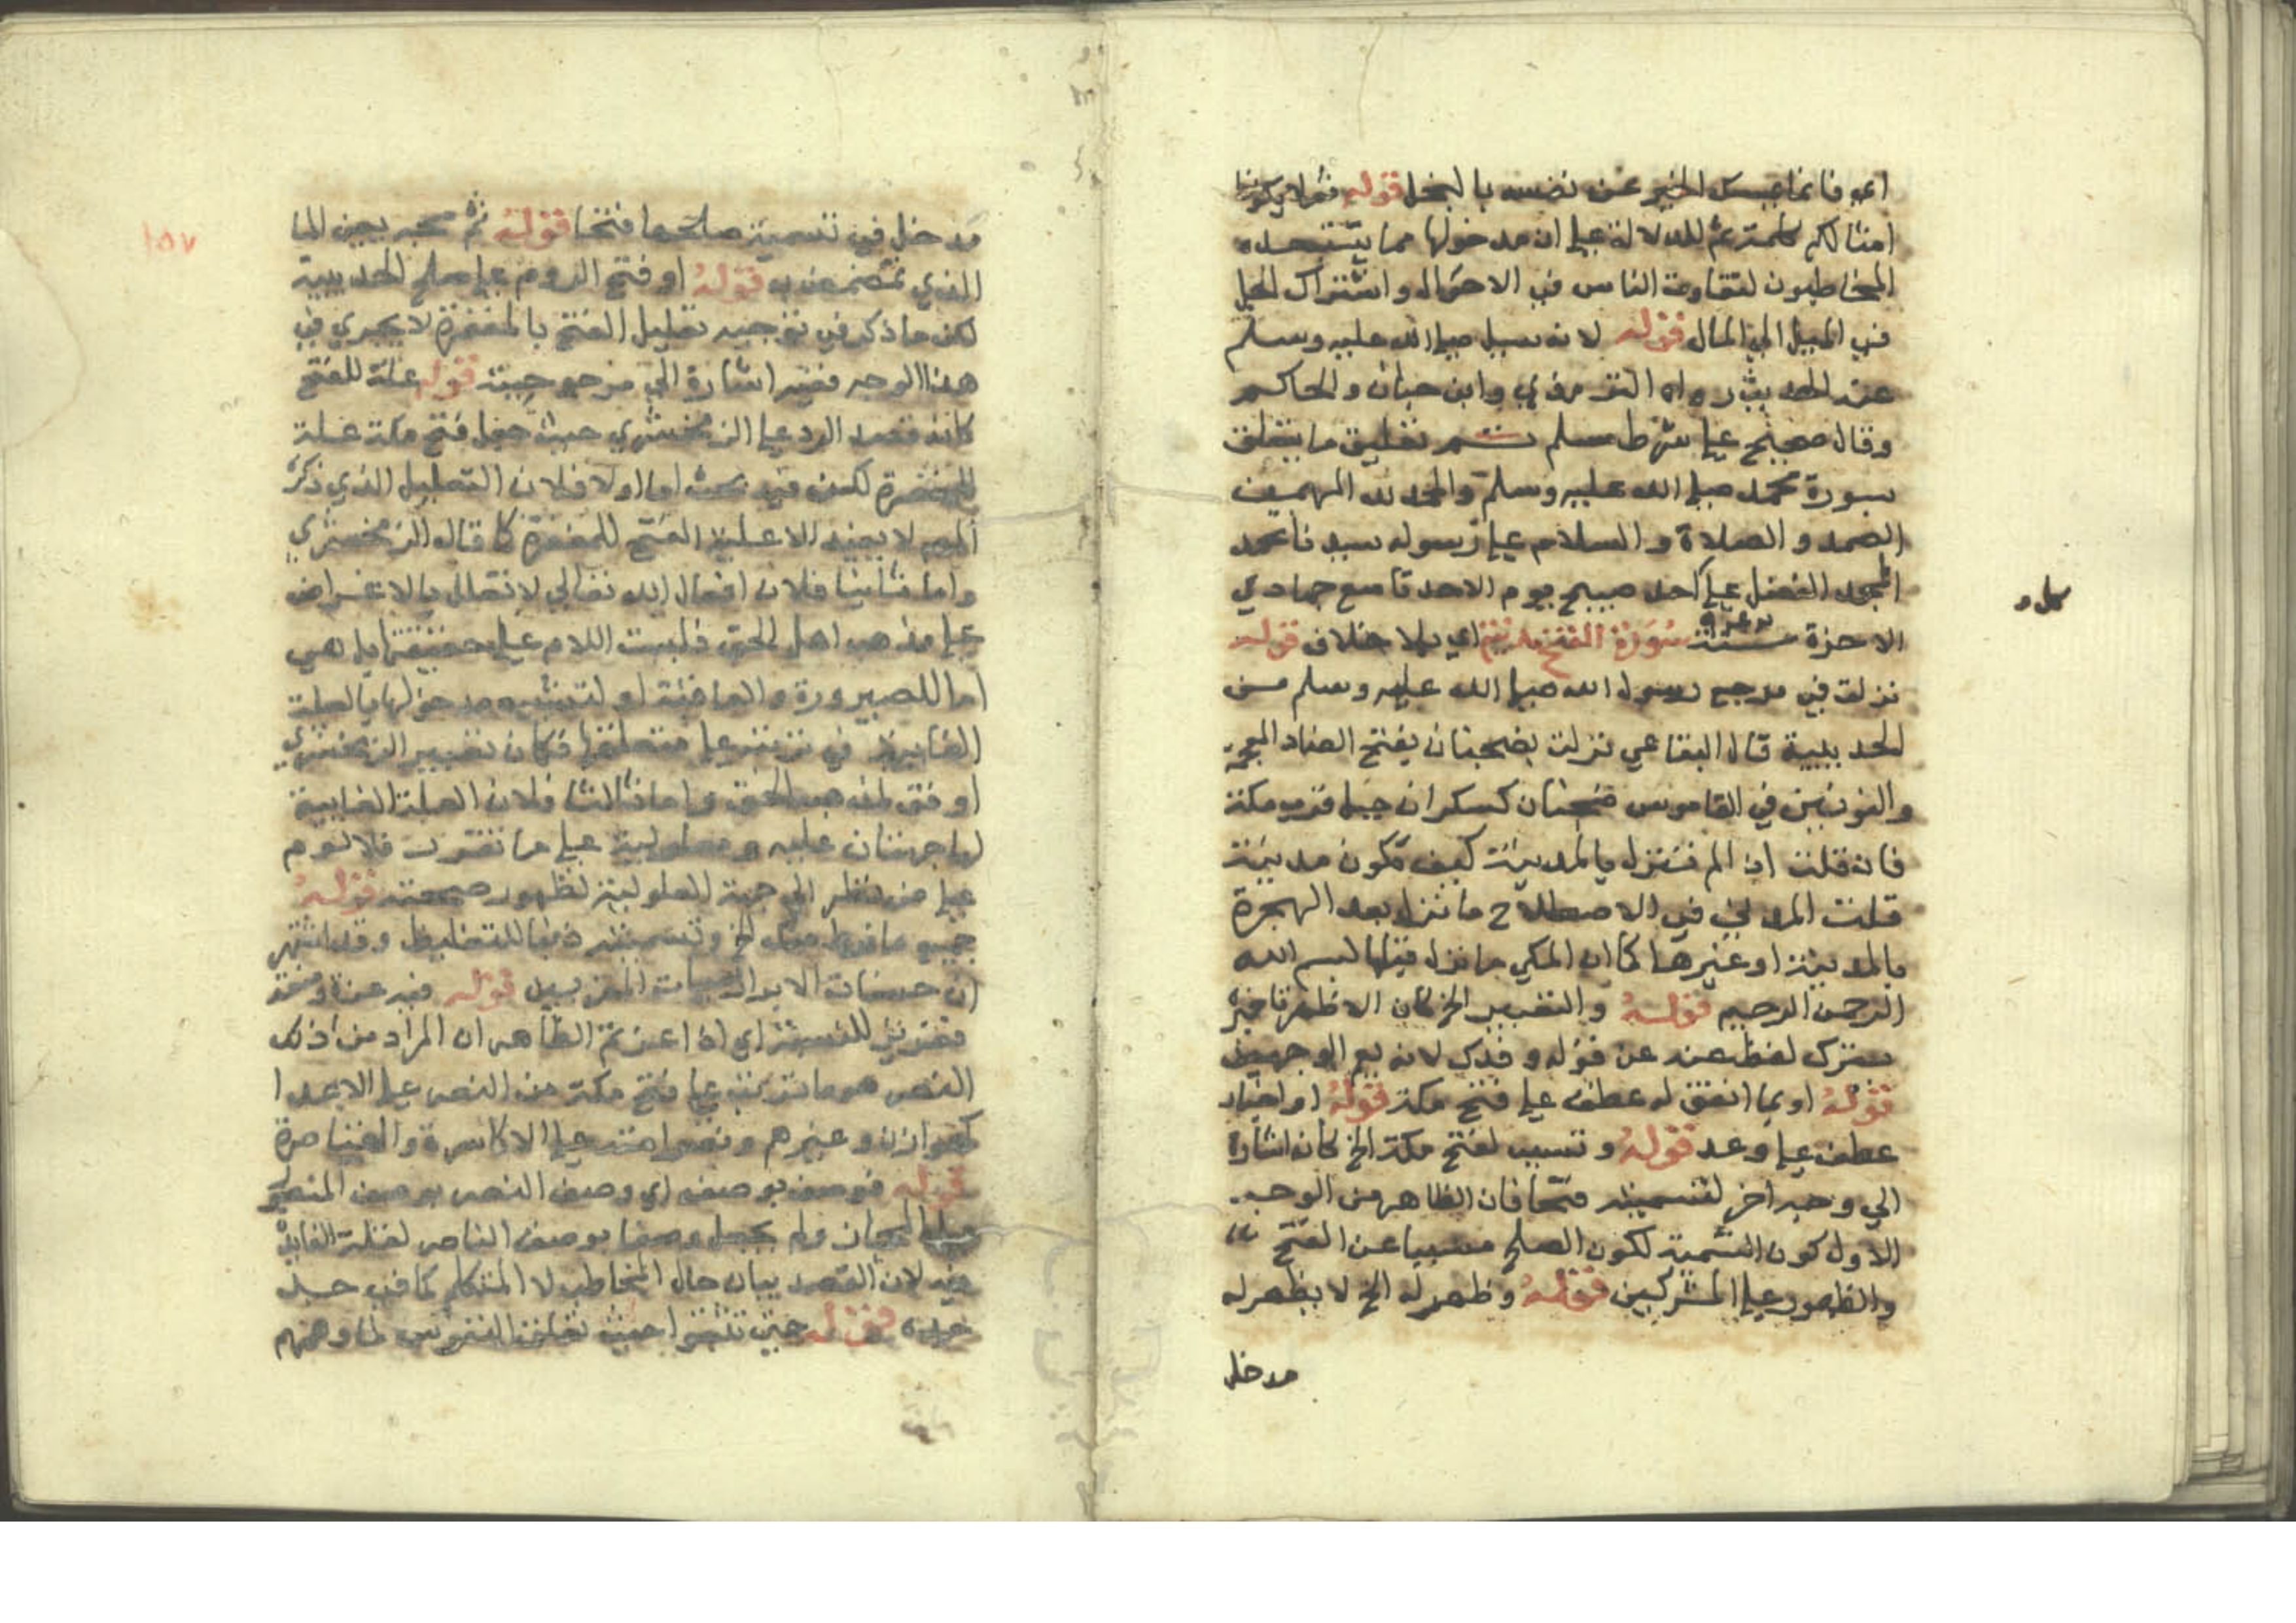 اي فانما يمسك الخير عن نفسه بالبخل قوله ثم لا يكونوا
امثالكم كلمة ثم للدلالة على ان مدخولها مما يستبعده
المخاطبون لتقارب الناس في الاحوال واشتراك الجل
في الميل الى المال قوله لانه سئل صلى الله عليه وسلم
عنه الحديث رواه الترمذي وابن حبان والحاكم
وقال صحيح على شرط مسلم تم تعليق ما يتعلق
بسورة محمد صلى الله عليه وسلم والحمد لله المهيمن
الصمد والصلاة والسلام على رسوله سيدنا محمد
المجد المفضل على كل احد صبيح يوم الاحد تاسع جمادي
الاخرة سنة سورة الفتح مدنية اي بلا خلاف قوله
نزلت في مرجع رسول الله صلى الله عليه وسلم من
الحديبية قال البقاعي نزلت بضجنان بفتح الضاد المعجمة
والنونين في القاموس ضجنان كسكران جبل قرب مكة
فان قلت اذا لم تنزل بالمدينة كيف تكون مدينة
قلت المدني في الاصطلاح ما نزل بعد الهجرة
بالمدينة او غيرها كما ان المكي ما نزل قبلها بسم الله
الرحمن الرحيم قوله والتعبير الخ كان الاظهر تاخير
سترك لفظ عنه عن قوله وفدك لانه يعم الوجهين
قوله او بما اتفق له عطف على فتح مكة قوله او اخبار
عطف على وعد قوله وتسبب لفتح مكة الخ كانه اشارة
الي وجه اخر لتسميته فتحا فان الظاهر من الوجه
الاول كون التسمية لكون الصلح مسببا عن الفتح
والظهور على المشركين قوله وظهر له الخ لا يظهر له
مدخل
مدخل في تسمية صلحها فتحا قوله ثم مجه يعني الما
الذي تمضمض به قوله او فتح الروم على صلح الحديبية
لكن ما ذكر في توجيه تعليل الفتح بالمغفرة لا يجري في
هذا الوجه ففيه اشارة الي مرجوحيته قوله علة للفتح
كانه قصد الرد على الزمخشري حيث جعل فتح مكة علة
للمغفرة لكن فيه بحث اما اولا فلان التعليل الذي ذكره
المص لا يفيد الا علية الفتح للمغفرة كما قاله الزمخشري
واما ثانيا فلان افعال الله تعالي لا تعلل بالاغراض
على مذهب اهل الحق فليست اللام على حقيقتها بل هي
اما للصيرورة والعاقبة او لتشبيه مدخولها بالعلة
الغايية في ترتبه على متعلقها فكان تفسير الزمخشري
اوفق لمذهب الحق واما ثالثا فلان العلة الغايية
لها جهتان علية ومعلولية على ما تقرر فلا لوم
على من نظر الي جهة المعلولية لظهور صحته قوله
جميع ما فرط منك الخ وتسميته ذنبا للتغليظ وقد اشتهر
ان حسنات الابرار سيات المقربين قوله فيه عز ومنعة
فعزيز للنسبة اي ذا عز ثم الظاهر ان المراد من ذلك
النصر هو ما ترتب على فتح مكة من النصر على الاعدا
كهوازن وغيرهم ونصر امته على الاكاسرة والقياصرة
قوله فوصف بوصفه اي وصف النصر بوصف المنصور
على المجاز ولم يجعل وصفا بوصف الناصر لقلة الفايدة
فيه لان القصد بيان حال المخاطب لا المتكلم كما في جد
جده قوله حتى تثبتوا حيث تقلق النفوس لما دهمهم
١٥٧